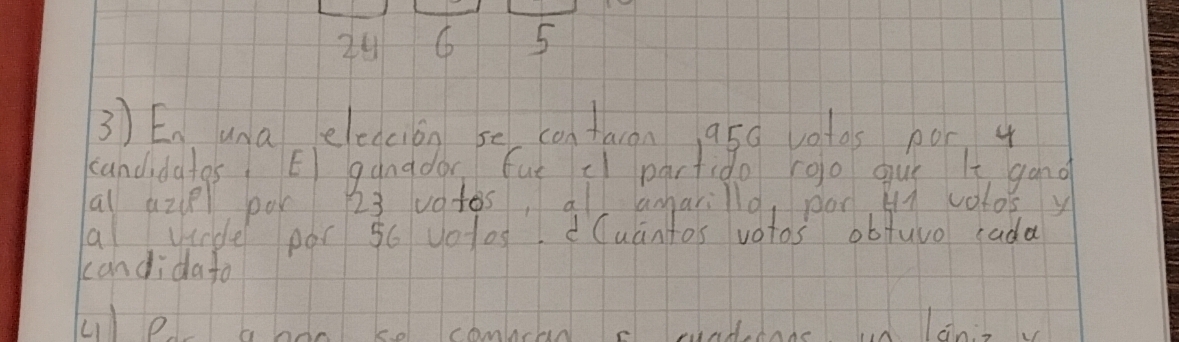 24 6 5
3) En una elección se contaron 956 votos por 4
candidatos. El ganador fue el partido rojo que le ganó
al azul por 23 votos, al amarillo, por 41 votos y
al verde por 56 votos. ¿Cuántos votos obtuvo cada
candidato
4) Por a se compran 5 cuadernos un lápiz y